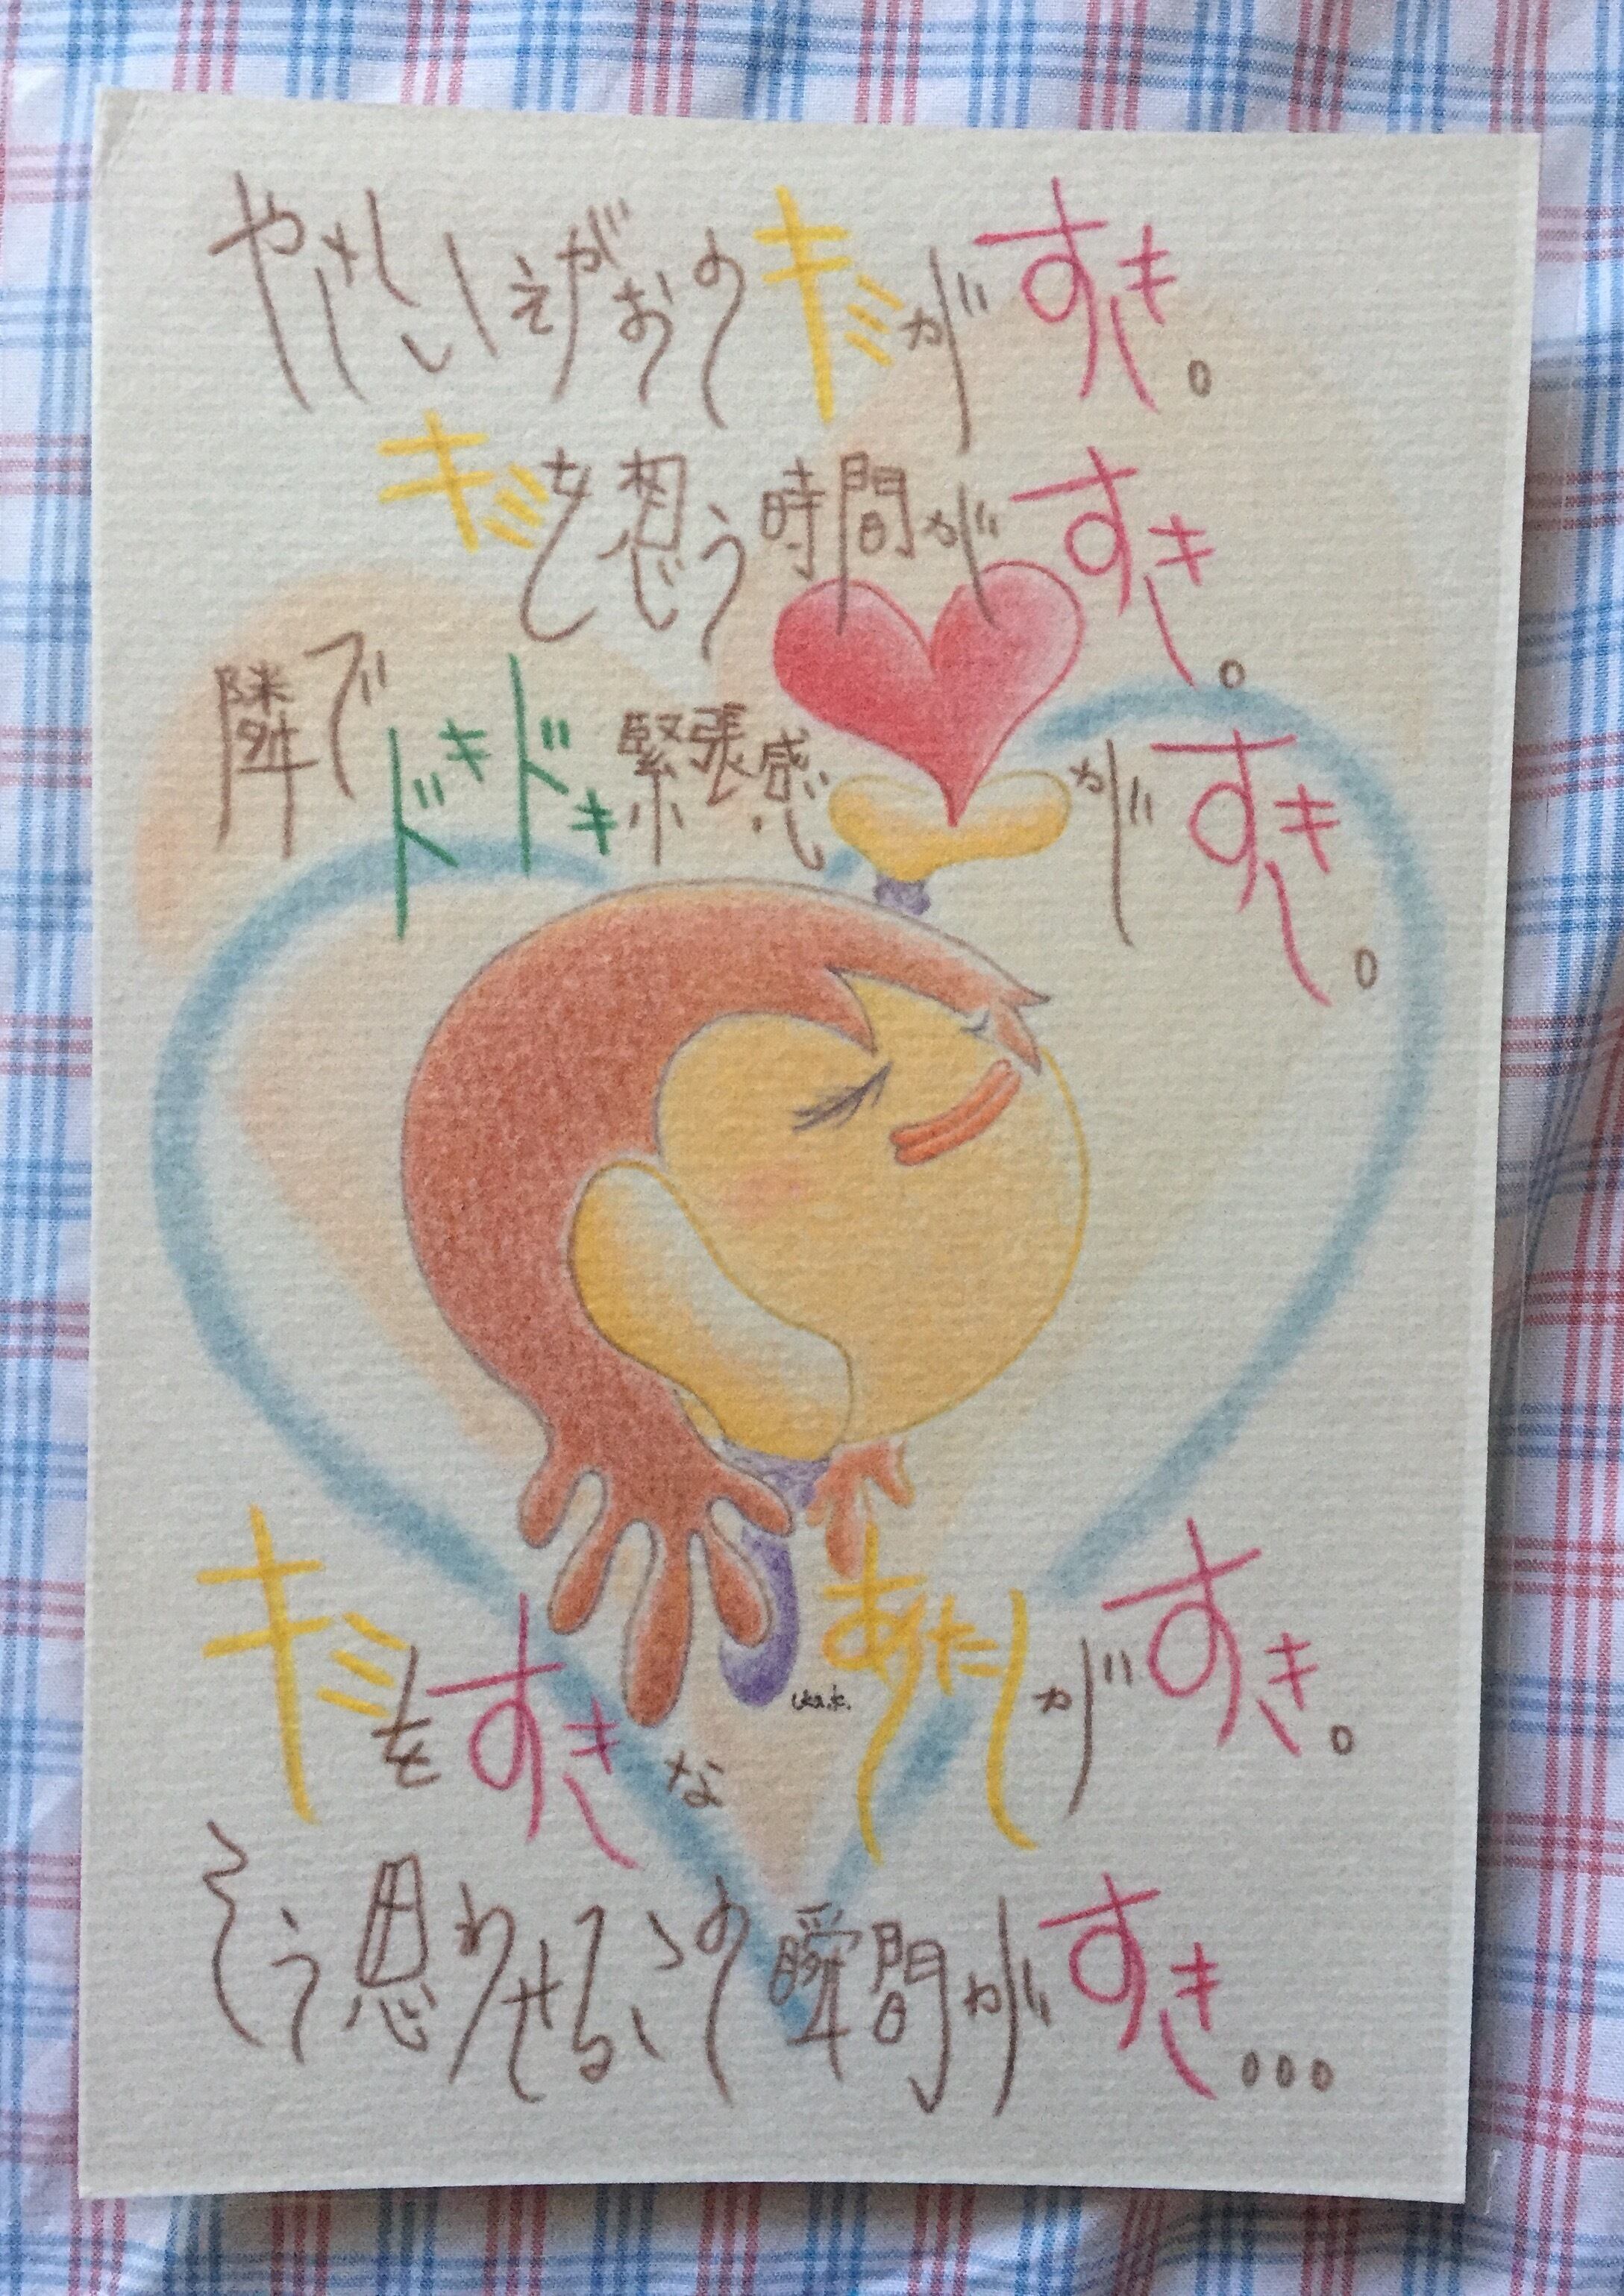 やさしいえがおのキミがすき。
キミを想う時間がすき。
隣でドキドキ緊張感がすき。
uka.k.
キミをすきなあたしがすき。
そう思わせるこの瞬間がすき...